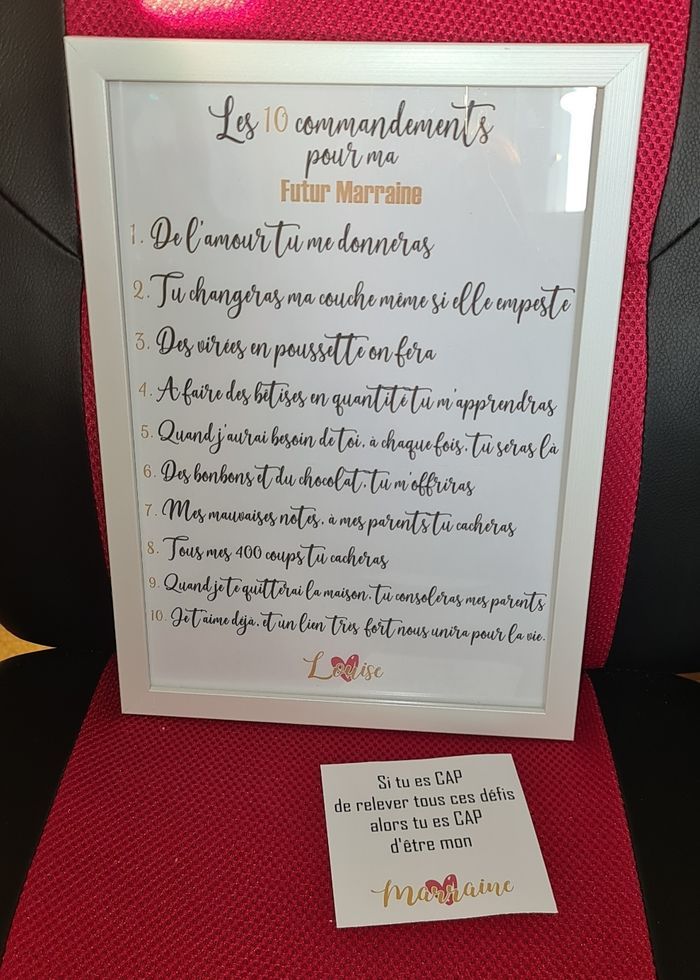 Les 10 commandements
pour ma
Futur Marraine
1. De l'amour tu me donneras
2. Tu changeras ma couche même si elle empeste
3. Des virées en poussette on fera
4. A faire des bêtises en quantité tu m'apprendras
5. Quand j'aurai besoin de toi, à chaque fois, tu seras là
6. Des bonbons et du chocolat, tu m'offriras
7. Mes mauvaises notes, à mes parents tu cacheras
8. Tous mes 400 coups tu cacheras
9. Quand je te quitterai la maison, tu consoleras mes parents
10. Je t'aime déjà, et un lien très fort nous unira pour la vie.
Louise
Si tu es CAP
de relever tous ces défis
alors tu es CAP
d'être mon
Marraine